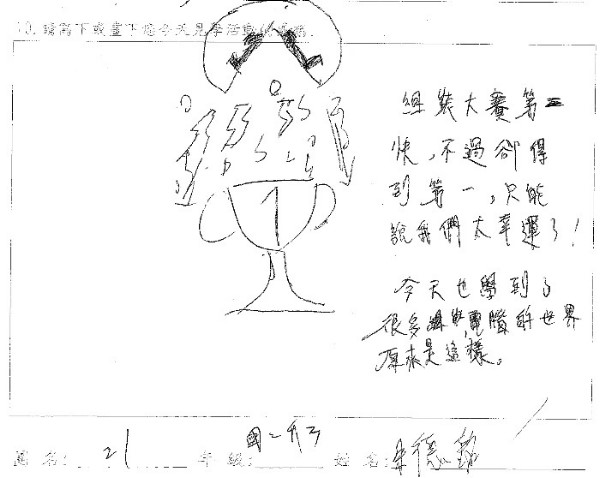 10. 請寫下或畫下您今天見學活動的感想.
1
組裝大賽第二
快，不過卻得
到第一，只能
說我們太幸運了！
今天也學到了
很多,電腦的世界
原來是這樣。
21 年級: 國二升三 姓名: 德銘